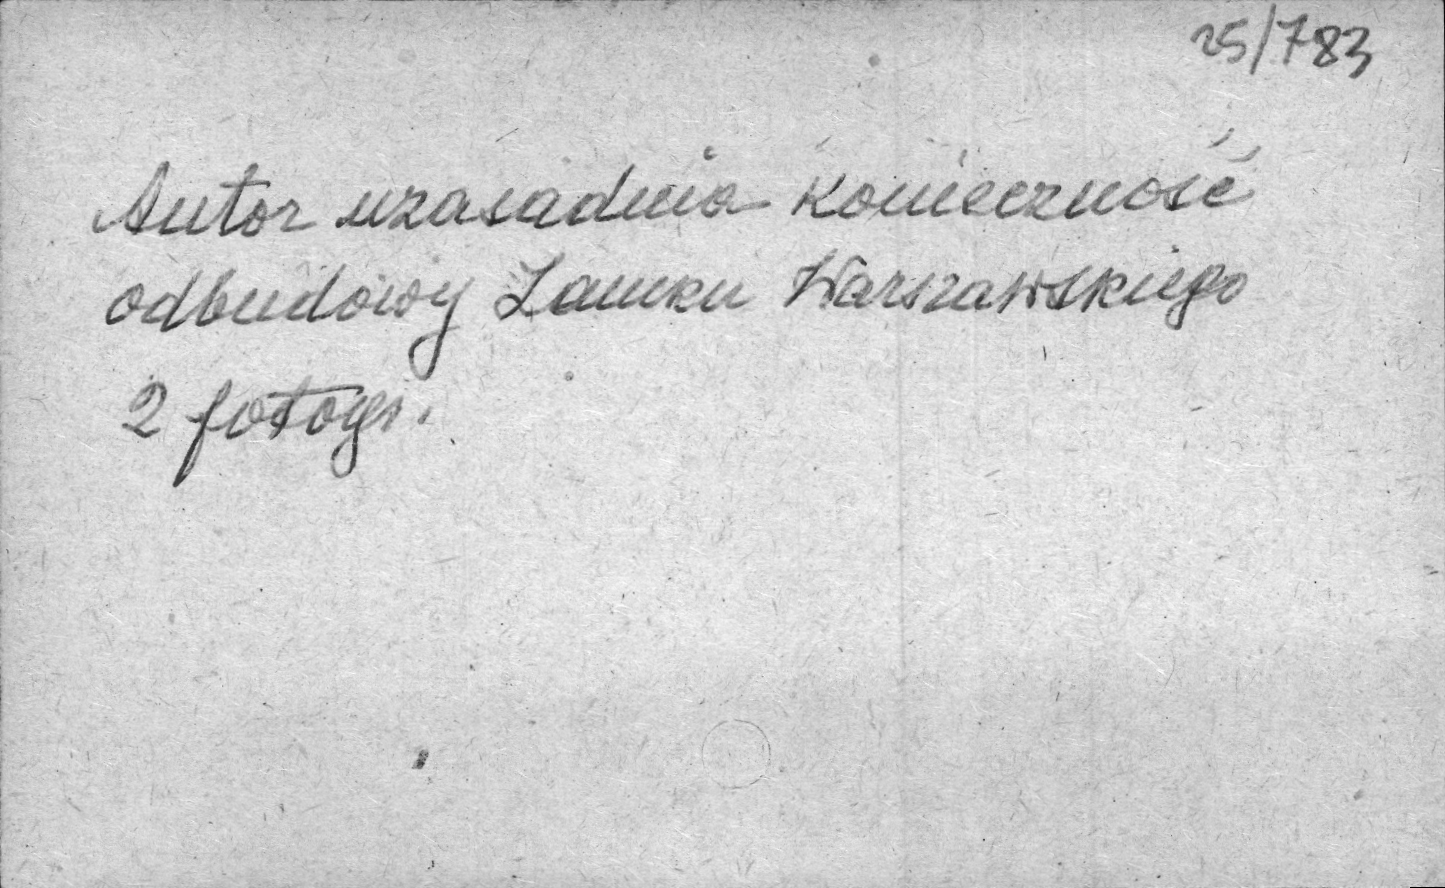 25/783
Autor uzasadnia konieczność
odbudowy Zamku Warszawskiego
2 fotogr.